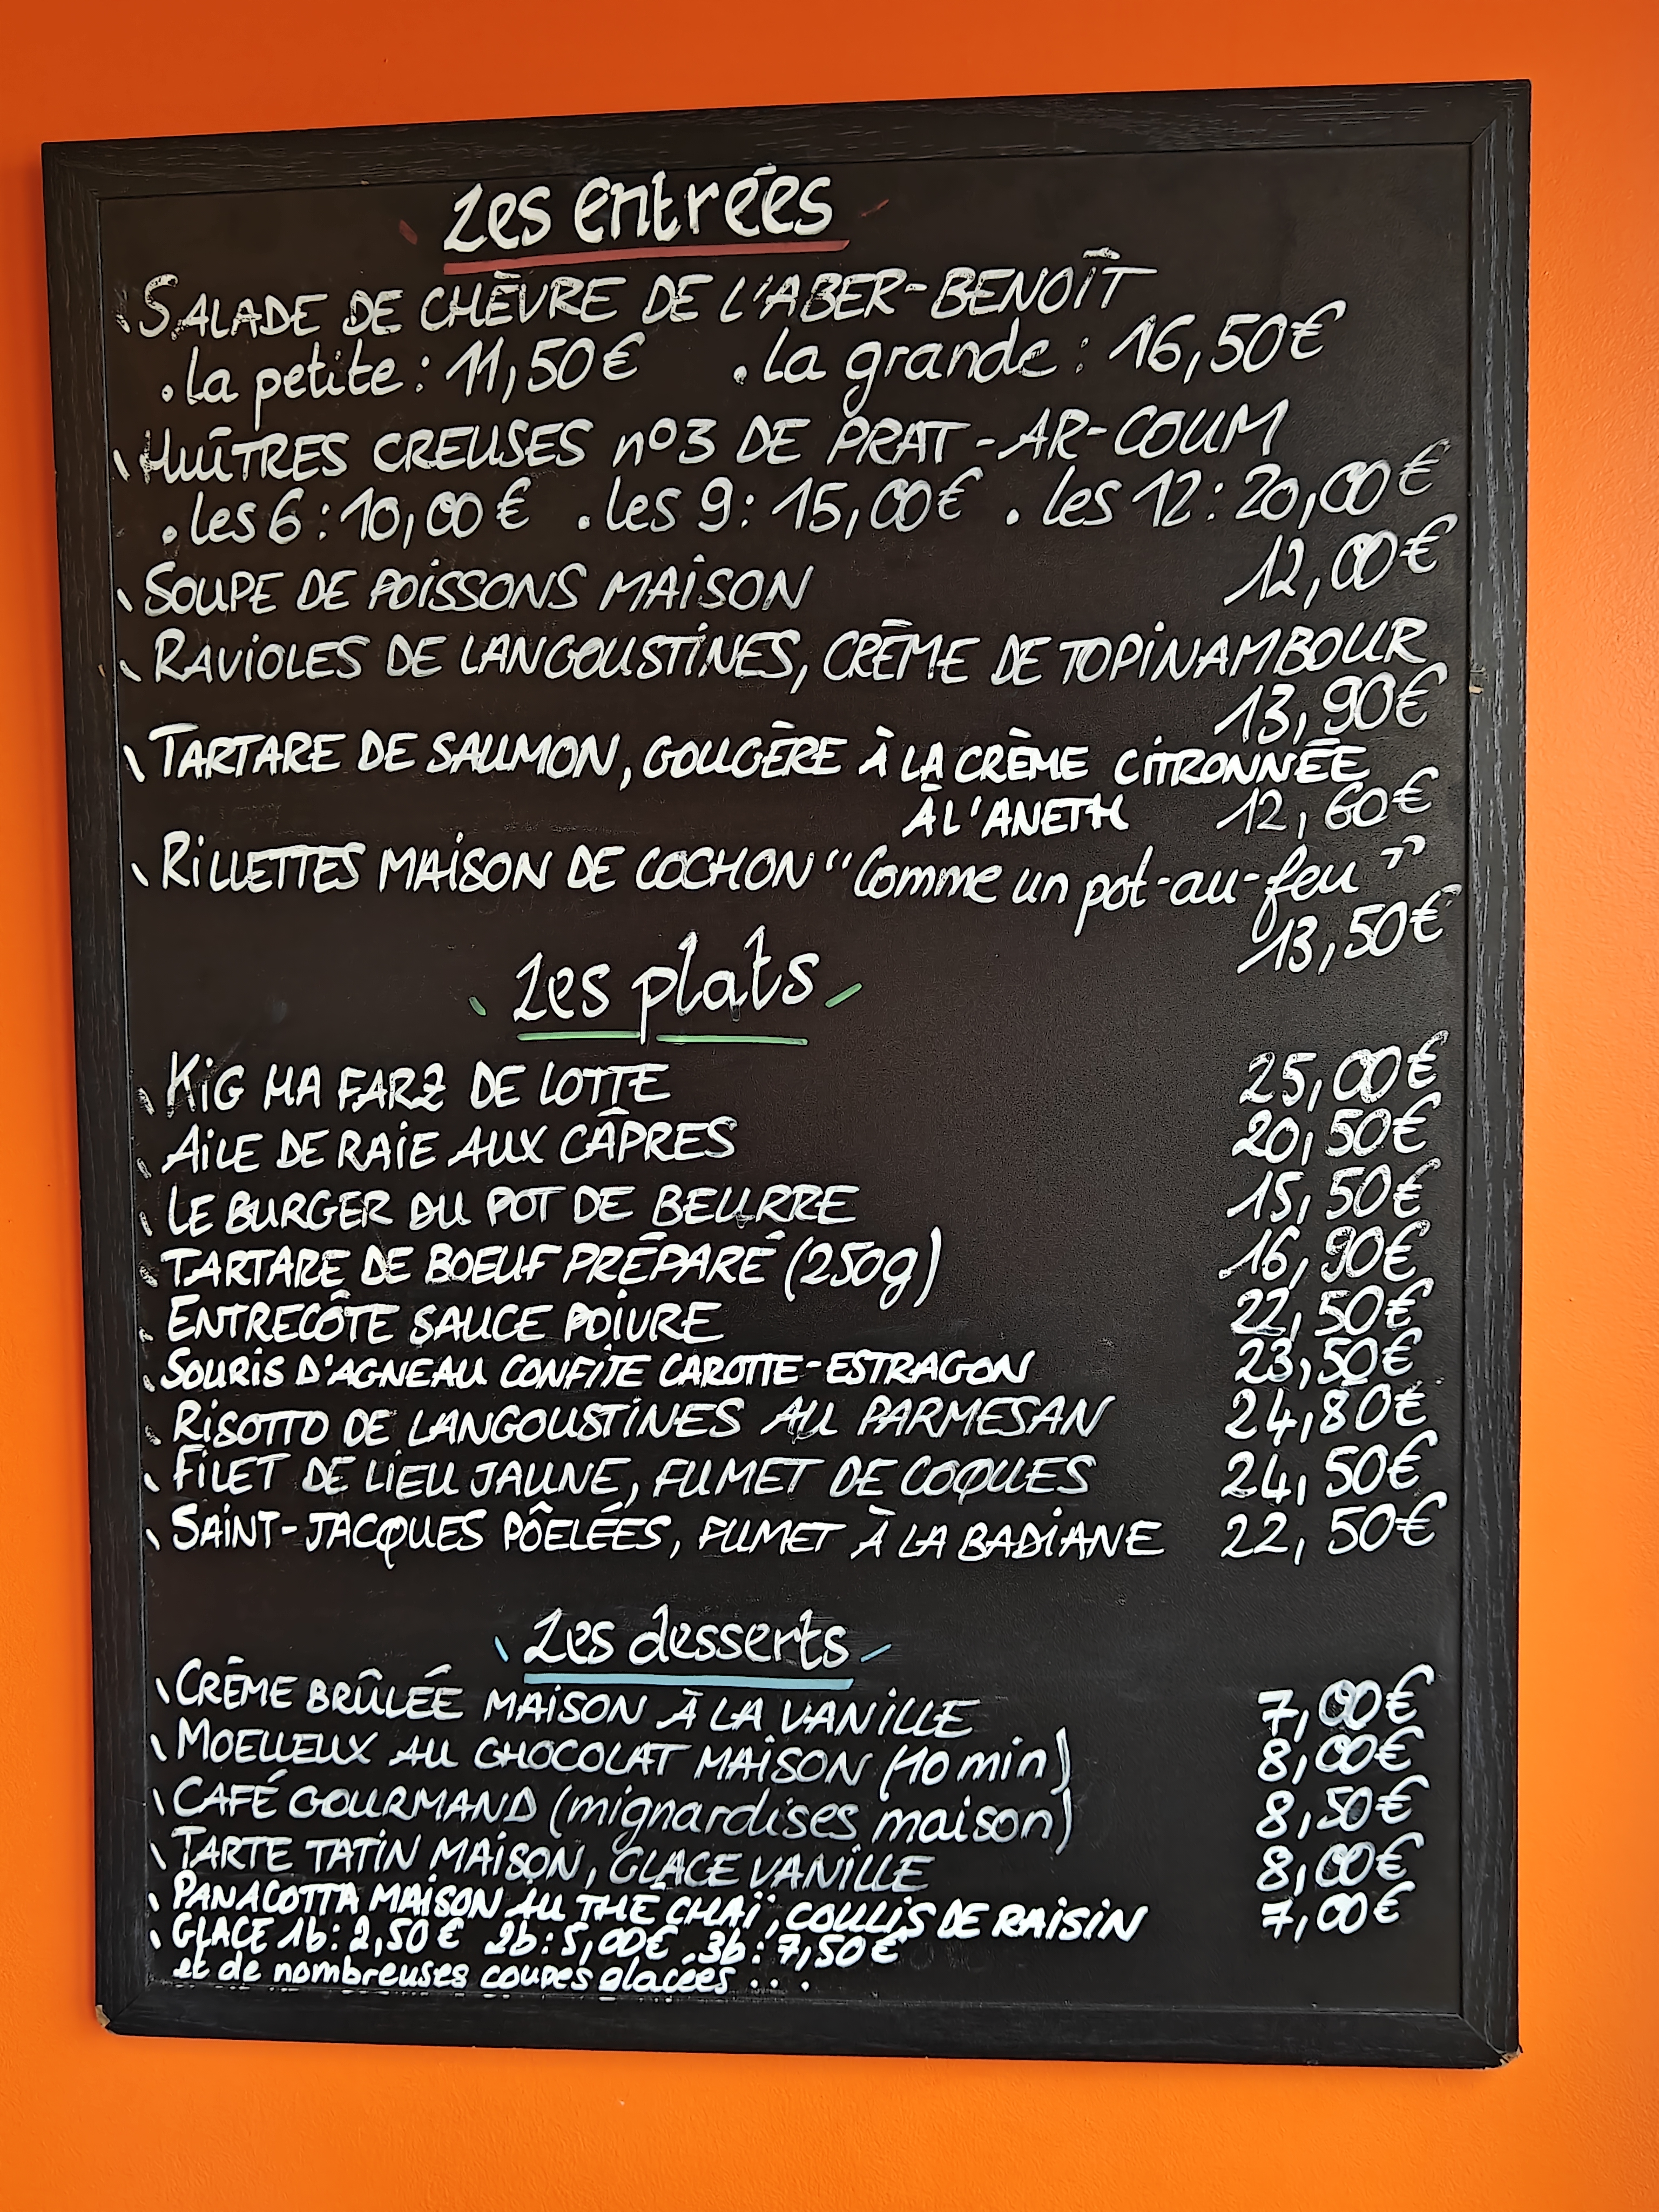 Les entrées
SALADE DE CHÈVRE DE L'ABER-BENOÎT
. la petite : 11,50€ . la grande : 16,50€
HUÎTRES CREUSES n°3 DE PRAT-AR-COUM
. les 6 : 10,00€ . les 9 : 15,00€ . les 12 : 20,00€
SOUPE DE POISSONS MAISON 12,00€
RAVIOLES DE LANGOUSTINES, CRÈME DE TOPINAMBOUR
13,90€
TARTARE DE SAUMON, GOUGÈRE À LA CRÈME CITRONNÉE
À L'ANETH 12,60€
RILLETTES MAISON DE COCHON "Comme un pot-au-feu"
13,50€
Les plats
KIG HA FARZ DE LOTTE 25,00€
AILE DE RAIE AUX CÂPRES 20,50€
LE BURGER DU POT DE BEURRE 15,50€
TARTARE DE BOEUF PRÉPARÉ (250g) 16,90€
ENTRECÔTE SAUCE POIVRE 22,50€
SOURIS D'AGNEAU CONFITE CAROTTE-ESTRAGON 23,50€
RISOTTO DE LANGOUSTINES AU PARMESAN 24,80€
FILET DE LIEU JAUNE, FUMET DE COQUES 24,50€
SAINT-JACQUES PÔELÉES, FUMET À LA BADIANE 22,50€
Les desserts
CRÈME BRÛLÉE MAISON À LA VANILLE 7,00€
MOELLEUX AU CHOCOLAT MAISON (10 min) 8,00€
CAFÉ GOURMAND (mignardises maison) 8,50€
TARTE TATIN MAISON, GLACE VANILLE 8,00€
PANACOTTA MAISON AU THÉ CHAÏ, COULIS DE RAISIN 7,00€
GLACE 1b : 2,50€ 2b : 5,00€ . 3b : 7,50€
et de nombreuses coupes glacées ...